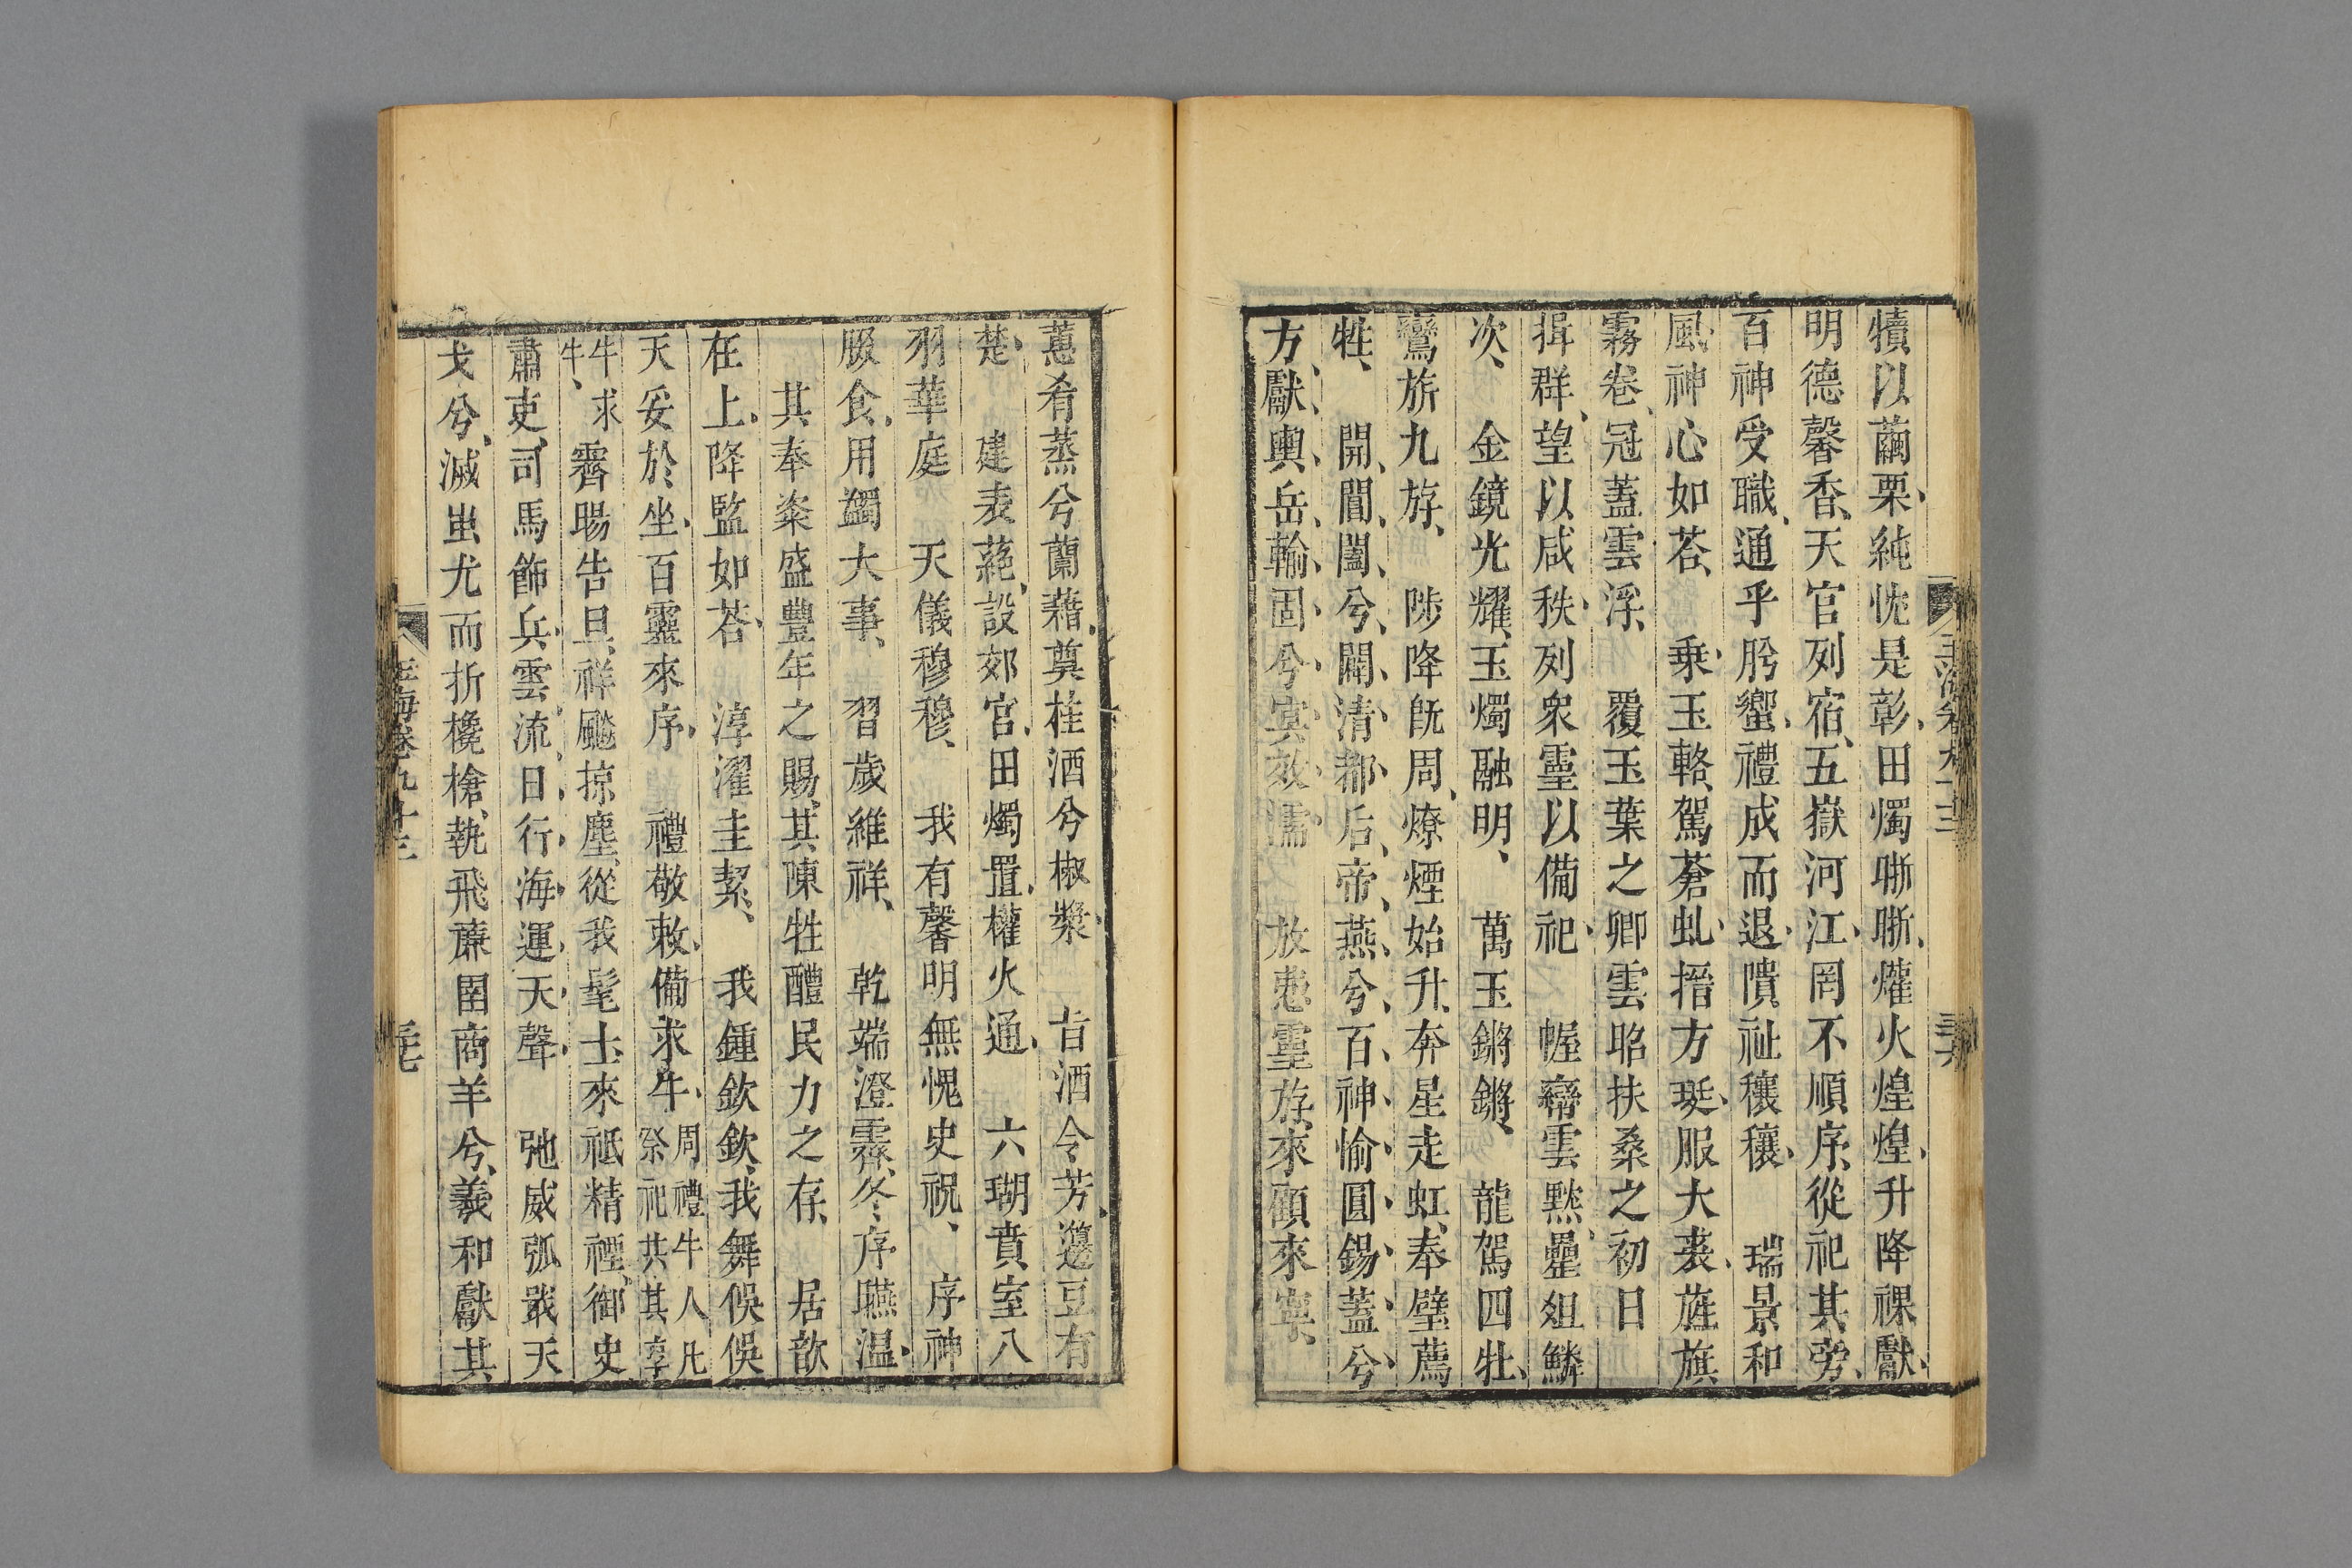 犢以繭栗、純忱是彰、田燭晣晣、爟火煌煌、升降祼獻、
明德馨香、天官列宿、五嶽河江、罔不順序、從祀其旁、
百神受職、通乎肹蠁、禮成而退、隤祉穰穰、　瑞景和
風、神心如荅、　乗玉輅、駕蒼虬、搢方珽、服大裘、旌旗
霧卷、冠蓋雲浮、　覆玉葉之卿雲昭扶桑之初日
揖群望以咸秩、列衆靈以備祀、　幄黼雲黙、罍俎鱗
次、　金鏡光耀、玉燭融明、　萬玉鏘鏘、　龍駕四牡、
鸞旂九斿、　陟降旣周、燎煙始升、奔星走虹、奉璧薦
牲、　開閶闔兮、闢清都、后帝、燕兮、百神愉、圓錫蓋兮、
方獻輿、岳輸固兮、　放患靈斿、來顧來寧、
蕙肴蒸兮蘭藉、奠桂酒兮椒漿、　㫖酒令芳、籩豆有
楚、　建表蕝、設郊宮、田燭置、權火通、　六瑚賁室八
羽華庭　天儀穆穆、　我有馨明無愧史祝、　序神
腏食、用蠲大事、　習歲維祥、　乾端澄霽、冬序曣温、
其奉粢盛豐年之賜、其陳牲醴民力之存、　居歆
在上、降監如荅、　淳濯圭絜、　我鍾欽欽、我舞俁俁
天妥於坐、百靈來序、　禮敬敕備求牛、周禮牛人凡祭祀共其享
牛求牛、霽暘告旦、祥飈掠塵、從我髦士來祗精禋、御史
肅吏、司馬飾兵、雲流、日行、海運、天聲、　弛威弧戢天
戈兮、滅蚩尤而折欃槍、執飛廉圉商羊兮、羲和獻其
玉海卷九十三